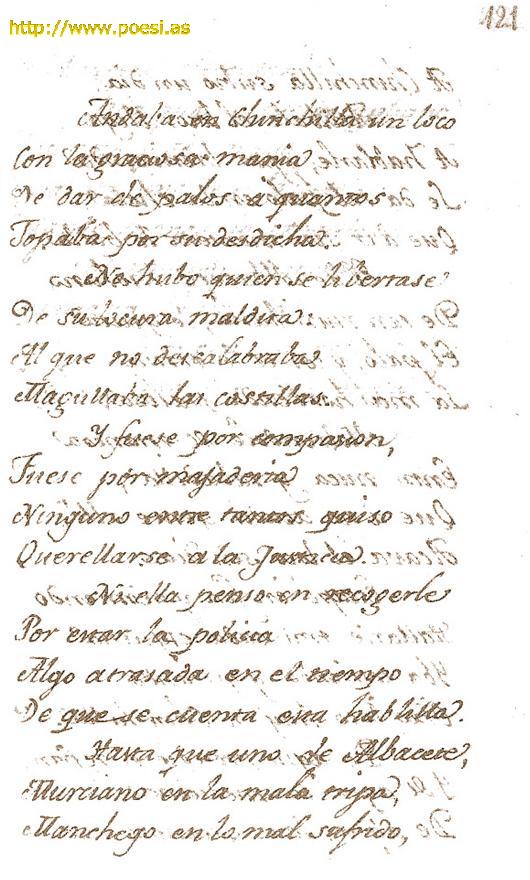 http://www.poesi.as
121
Andaba en Chinchilla un loco
Con la graciosa mania
De dar de palos á quantos
Topaba por su desdicha.
No hubo quien se libertase
De su locura maldita:
Al que no descalabraba
Magullaba las costillas.
Y fuese por compasion,
Fuese por majaderia
Ninguno entre tantos quiso
Querellarse a la Justicia.
Ni ella penso en recogerle
Por estar la policia
Algo atrasada en el tiempo
De que se cuenta esta hablilla.
Hasta que uno de Albacete,
Murciano en la mala tripa,
Manchego en lo mal sufrido,